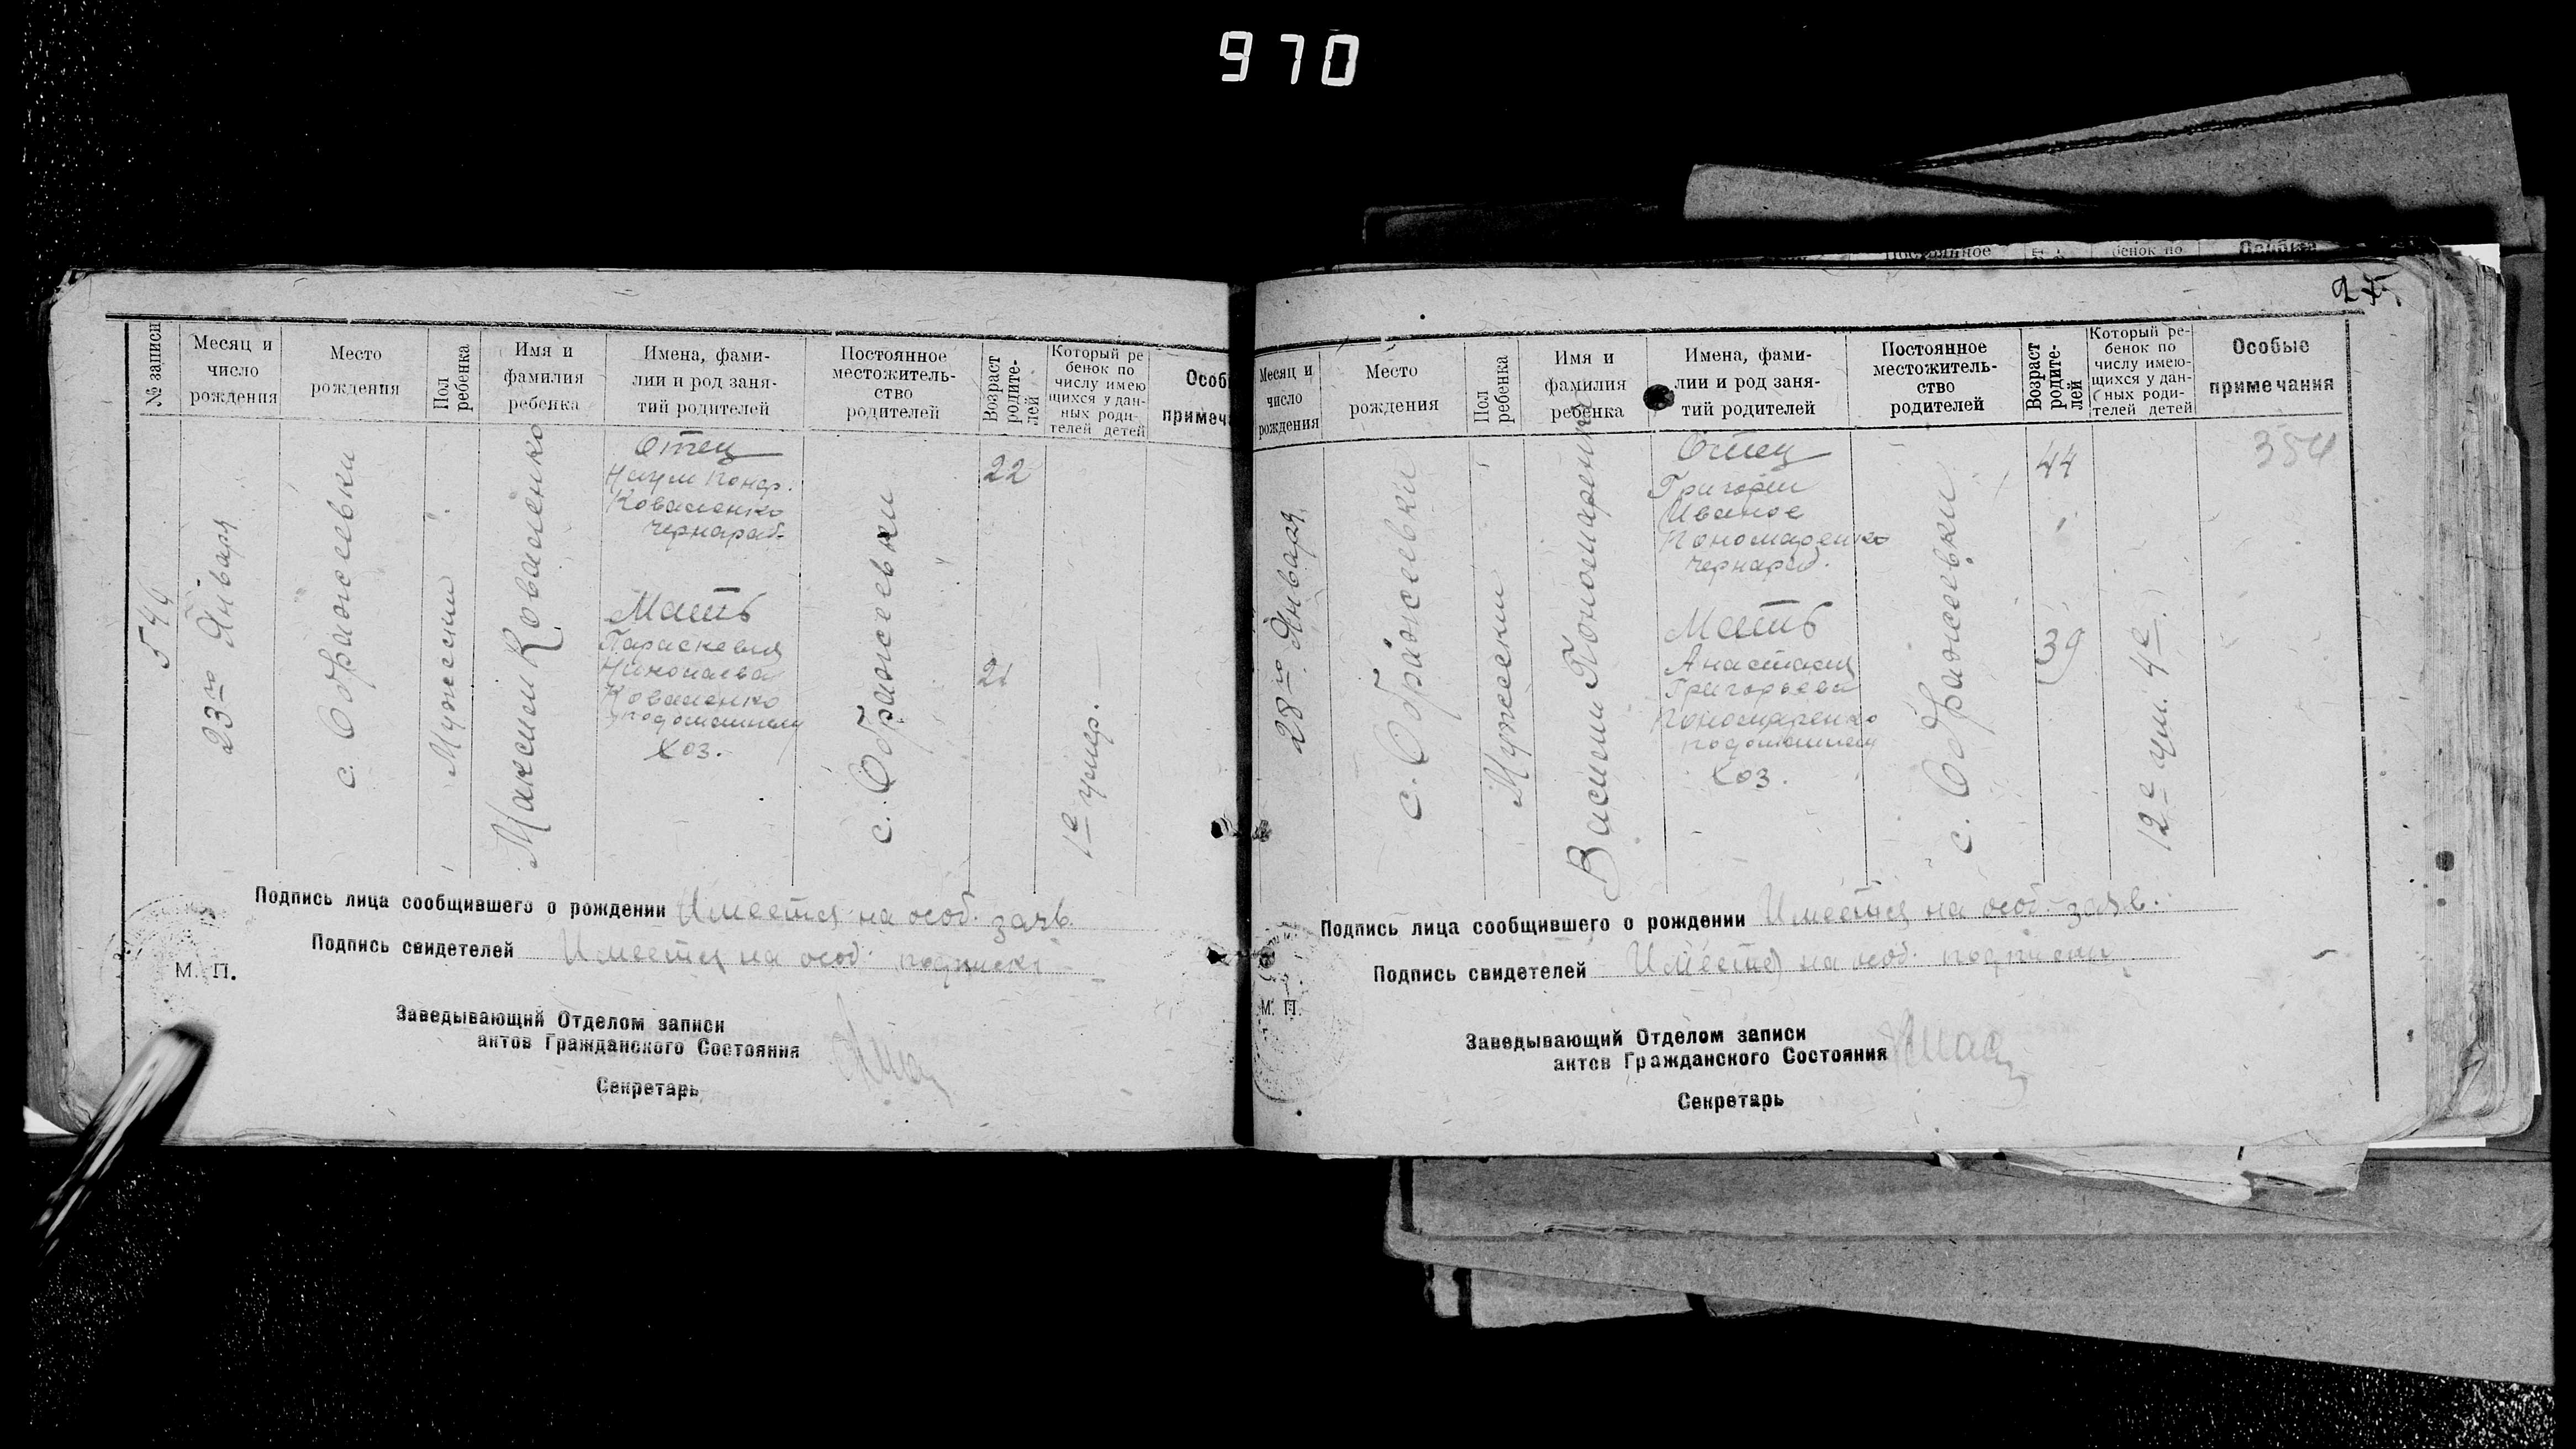 970
Постоянное
бенок по
Особые
№ записи
Месяц и
число
рождения
Место
рождения
Пол
ребенка
Имя и
фамилия
ребенка
Имена, фами-
лии и род заня-
тий родителей
Постоянное
местожитель-
ство
родителей
Возраст
родите-
лей
Который ре
бенок по
числу имею
щихся у дан-
ных роди-
телей детей
Особ
примеч
23го Января
с. Ображеевки
Мужески
Максим Коваленко
Отец
Наум Кондр.
Коваленко
чернараб.
Мать
Параскевия
Николаева
Коваленко
подомашнем
хоз.
с. Ображеевки
22
21
1е умер.
Подпись лица сообщившего о рождении Имеется на особ. заяв.
Подпись свидетелей Имеется на особ. подписки
М. П.
Заведывающий Отделом записи
актов Гражданского Состояния
Секретарь
Месяц и
число
рождения
Место
рождения
Пол
ребенка
Имя и
фамилия
ребенка
Имена, фами-
лии и род заня-
тий родителей
Постоянное
местожитель-
ство
родителей
Возраст
родите-
лей
Который ре-
бенок по
числу имею-
щихся у дан-
ных роди-
телей детей
Особые
примечания
28го Января
с. Ображеевки
Мужески
Василий Пономаренко
Отец
Григорий
Иванов
Пономаренко
чернараб.
Мать
Анастасия
Григорьева
Пономаренко
подомашнем
хоз.
с. Ображеевки
44
39
12е 4е
354
Подпись лица сообщившего о рождении Имеется на особ. заяв.
Подпись свидетелей Имеется на особ. подписки
М. П.
Заведывающий Отделом записи
актов Гражданского Состояния
Секретарь